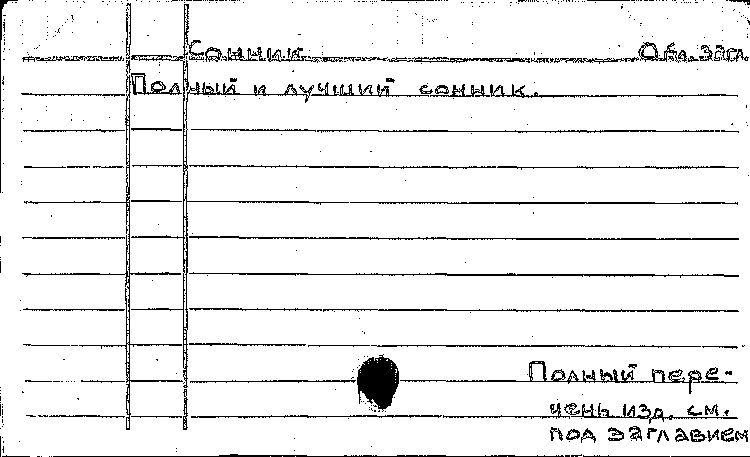 Сонник Обл. загл.
Полный и лучший сонник.
Полный пере-
чень изд. см.
под заглавием